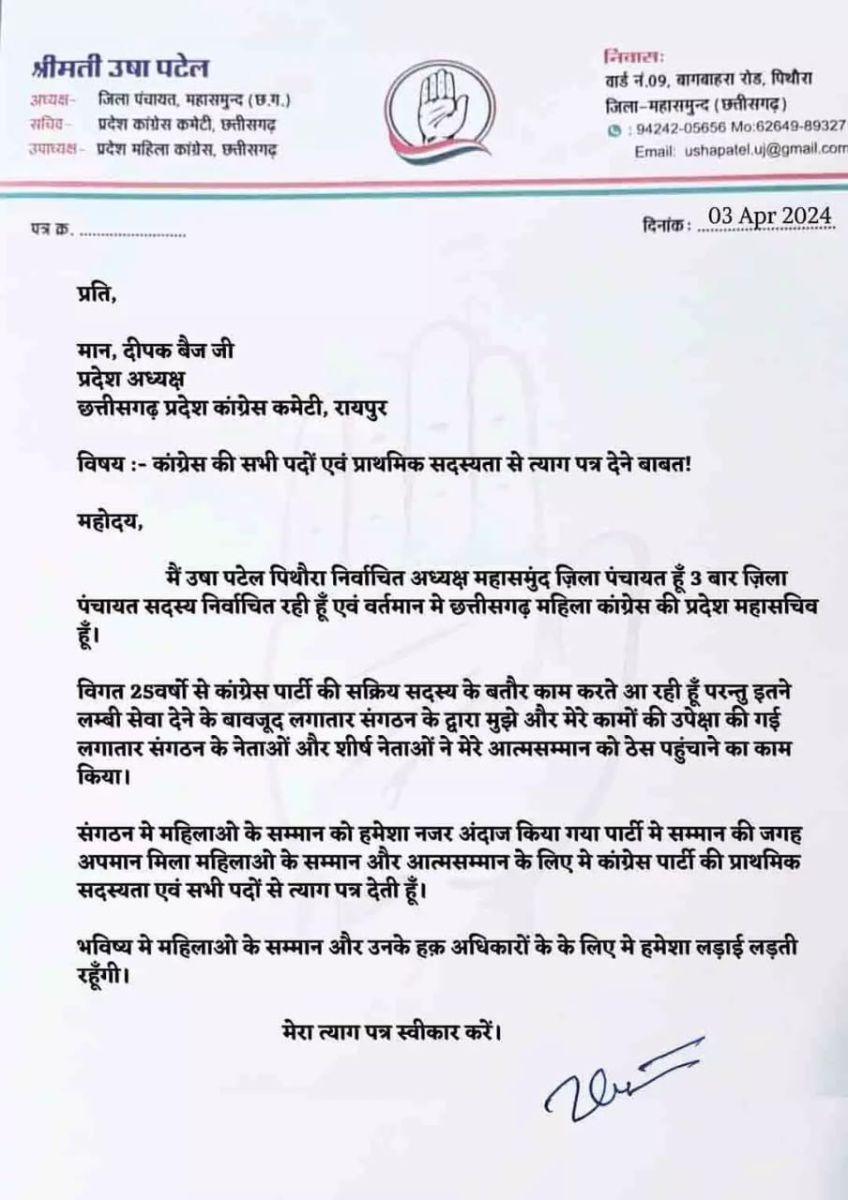 श्रीमती उषा पटेल
अध्यक्ष- जिला पंचायत, महासमुन्द (छ.ग.)
सचिव- प्रदेश कांग्रेस कमेटी, छत्तीसगढ़
उपाध्यक्ष- प्रदेश महिला कांग्रेस, छत्तीसगढ़
निवास:
वार्ड नं.09, बागबाहरा रोड, पिथौरा
जिला-महासमुन्द (छत्तीसगढ़)
: 94242-05656 Mo:62649-89327
Email: ushapatel.uj@gmail.com
पत्र क्र. ........................
दिनांक: 03 Apr 2024
प्रति,
मान, दीपक बैज जी
प्रदेश अध्यक्ष
छत्तीसगढ़ प्रदेश कांग्रेस कमेटी, रायपुर
विषय :- कांग्रेस की सभी पदों एवं प्राथमिक सदस्यता से त्याग पत्र देने बाबत!
महोदय,
मैं उषा पटेल पिथौरा निर्वाचित अध्यक्ष महासमुंद ज़िला पंचायत हूँ 3 बार ज़िला
पंचायत सदस्य निर्वाचित रही हूँ एवं वर्तमान मे छत्तीसगढ़ महिला कांग्रेस की प्रदेश महासचिव
हूँ।
विगत 25वर्षो से कांग्रेस पार्टी की सक्रिय सदस्य के बतौर काम करते आ रही हूँ परन्तु इतने
लम्बी सेवा देने के बावजूद लगातार संगठन के द्वारा मुझे और मेरे कामों की उपेक्षा की गई
लगातार संगठन के नेताओं और शीर्ष नेताओं ने मेरे आत्मसम्मान को ठेस पहुंचाने का काम
किया।
संगठन मे महिलाओ के सम्मान को हमेशा नजर अंदाज किया गया पार्टी मे सम्मान की जगह
अपमान मिला महिलाओ के सम्मान और आत्मसम्मान के लिए मे कांग्रेस पार्टी की प्राथमिक
सदस्यता एवं सभी पदों से त्याग पत्र देती हूँ।
भविष्य मे महिलाओ के सम्मान और उनके हक़ अधिकारों के के लिए मे हमेशा लड़ाई लड़ती
रहूँगी।
मेरा त्याग पत्र स्वीकार करें।